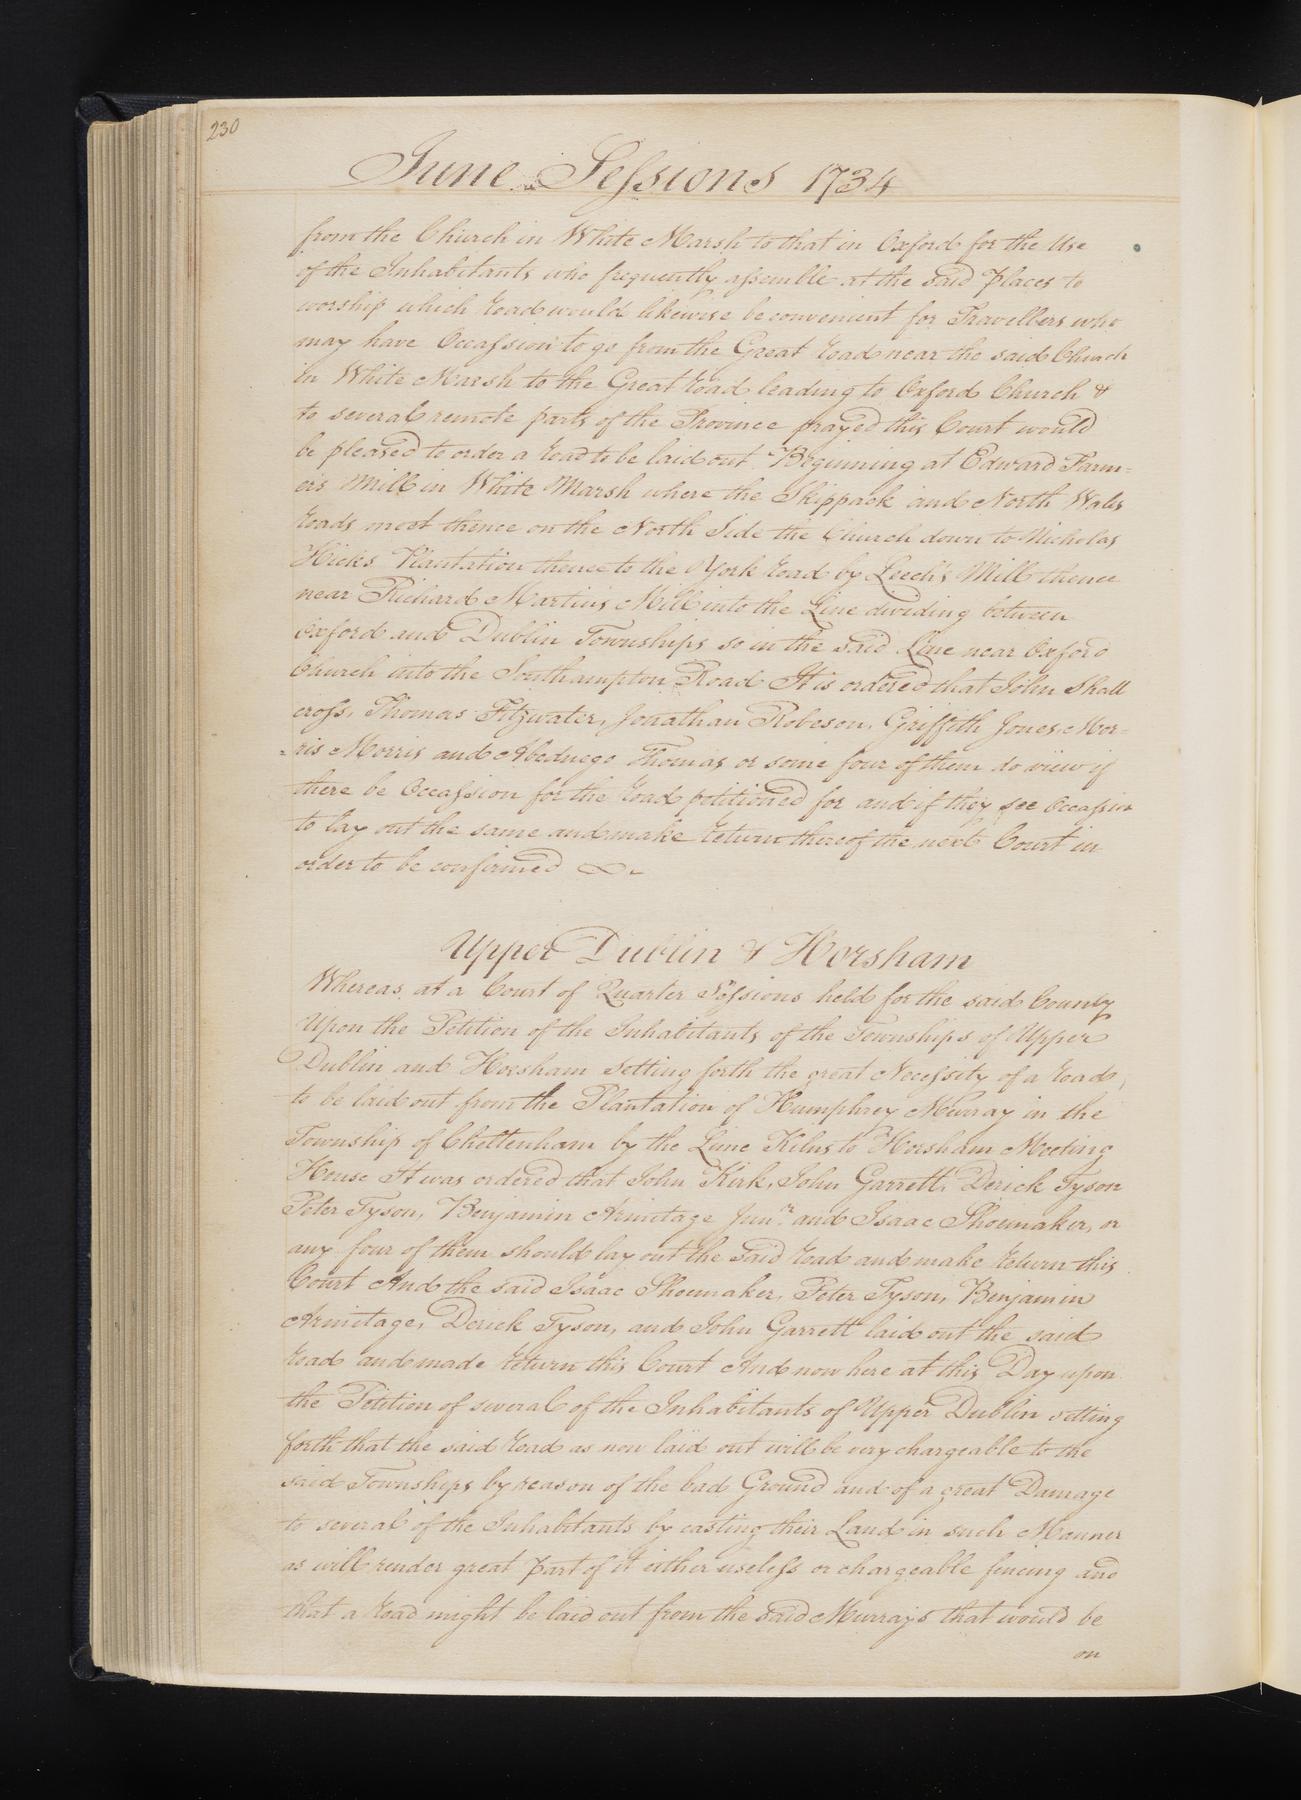 230
June Sessions 1734
from the Church in White Marsh to that in Oxford for the Use
of the Inhabitants who frequently assemble at the said places to
worship which road would likewise be convenient for Travellers who
may have Occassion to go from the Great road near the said Church
in White Marsh to the Great road leading to Oxford Church &
to several remote parts of the Province prayed this Court would
be pleased to order a road to be laid out Beginning at Edward Farm=
ers Mill in White Marsh where the Skippack and North Wales
roads meet thence on the North Side the Church down to Nicholas
Hicks Plantation thence to the York road by Leech's Mill thence
near Richard Martins Mill into the Line dividing between
Oxford and Dublin Townships so in the said Line near Oxford
Church into the Southampton Road It is ordered that John Shall
cross, Thomas Fitzwater, Jonathan Robeson, Griffith Jones, Mor=
=ris Morris and Abednego Thomas or some four of them do view if
there be Occassion for the road petitioned for and if they see Occassion
to lay out the same and make return thereof the next Court in
order to be confirmed
Upper Dublin & Horsham
Whereas at a Court of Quarter Sessions held for the said County
Upon the Petition of the Inhabitants of the Townships of Upper
Dublin and Horsham setting forth the great Necessity of a road
to be laid out from the Plantation of Humphrey Murray in the
Township of Cheltenham by the Lime Kilns to Horsham Meeting
House It was ordered that John Kirk, John Garrett, Derick Tyson
Peter Tyson, Benjamin Armitage Junr. and Isaac Shoemaker, or
any four of them should lay out the said road and make return this
Court And the said Isaac Shoemaker, Peter Tyson, Benjamin
Armitage, Derick Tyson, and John Garrett laid out the said
road and made return this Court And now here at this Day upon
the Petition of several of the Inhabitants of Upper Dublin setting
forth that the said road as now laid out will be very chargeable to the
said Townships by reason of the bad Ground and of a great Damage
to several of the Inhabitants by casting their Land in such Manner
as will render great part of it either useless or chargeable fencing and
that a road might be laid out from the said Murrays that would be
on